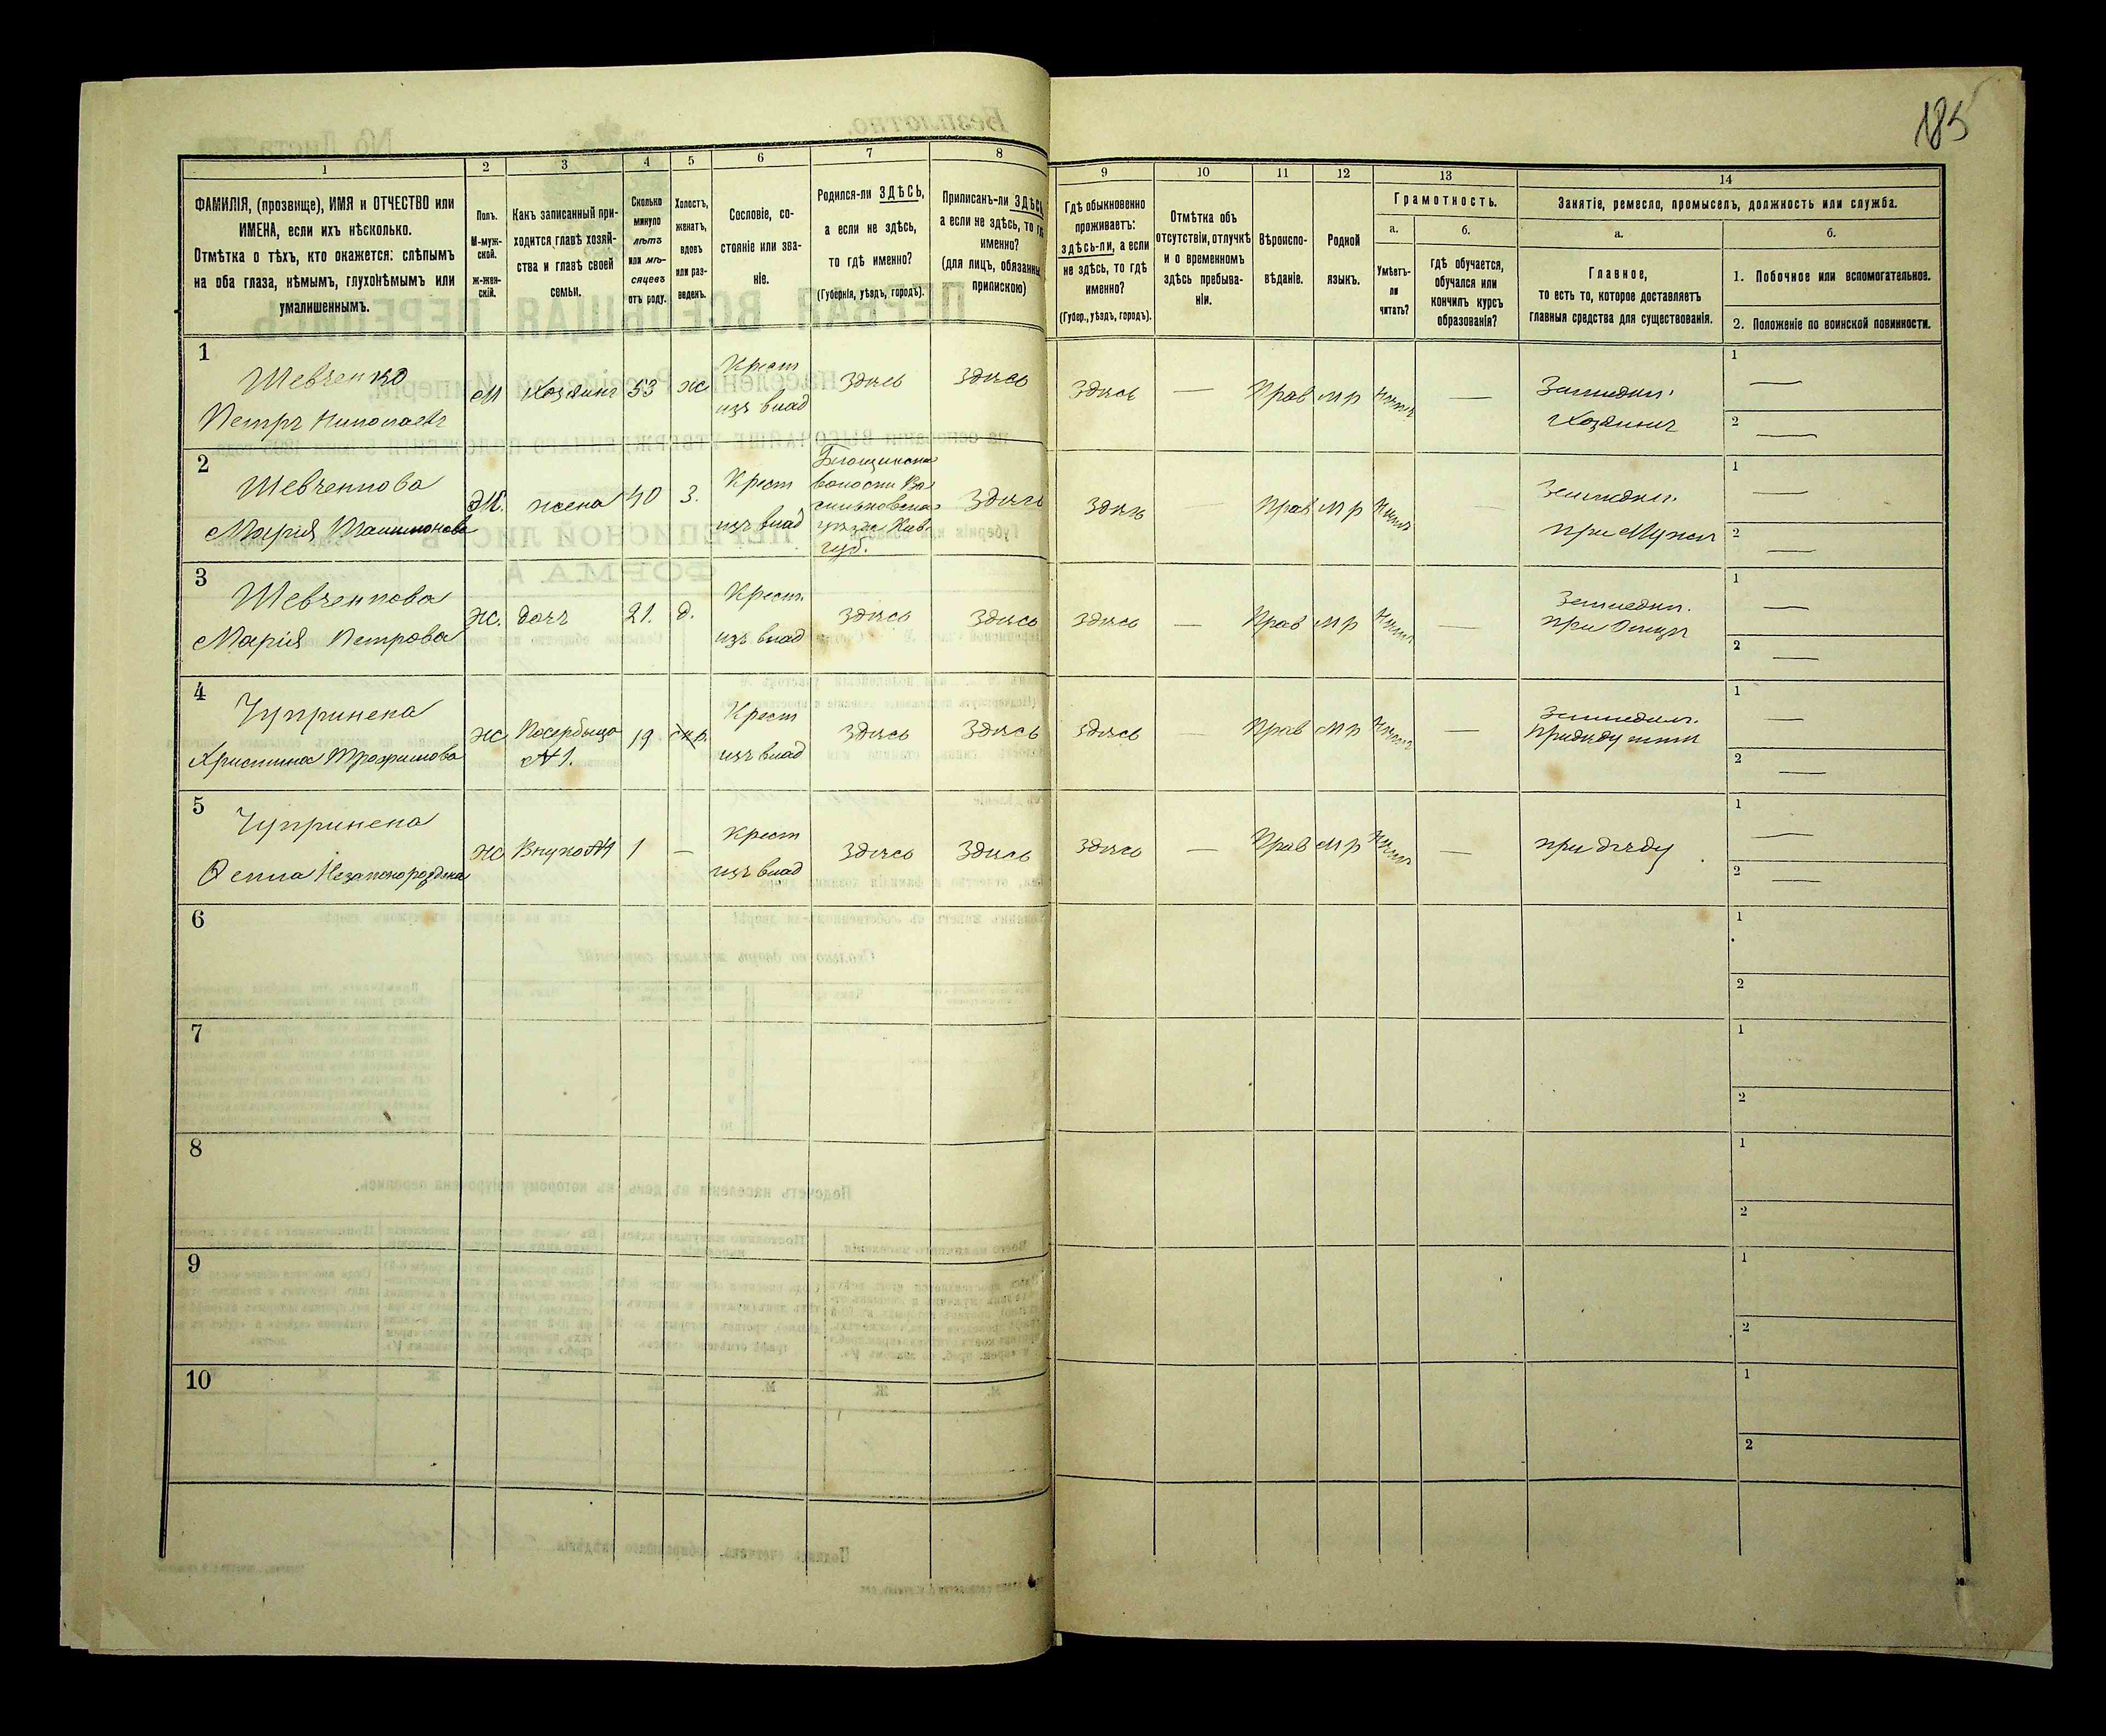 185
1
2
3
4
5
6
7
8
9
10
11
12
13
14
ФАМИЛІЯ, (прозвище), ИМЯ и ОТЧЕСТВО или
ИМЕНА, если ихъ нѣсколько.
Отмѣтка о тѣхъ, кто окажется: слѣпымъ
на оба глаза, нѣмымъ, глухонѣмымъ или
умалишеннымъ.
Полъ.
М-муж-
ской.
ж-жен-
скій.
Какъ записанный при-
ходится главѣ хозяй-
ства и главѣ своей
семьи.
Сколько
минуло
лѣтъ
или мѣ-
сяцевъ
отъ роду.
Холостъ,
женатъ,
вдовъ
или раз-
веденъ.
Сословіе, со-
стояніе или зва-
ніе.
Родился-ли ЗДѢСЬ,
а если не здѣсь,
то гдѣ именно?
(Губернія, уѣздъ, городъ).
Приписанъ-ли ЗДѢСЬ
а если не здѣсь, то гдѣ
именно?
(для лицъ, обязанны
припиской)
Гдѣ обыкновенно
проживаетъ:
здѣсь-ли, а если
не здѣсь, то гдѣ
именно?
(Губер., уѣздъ, городъ).
Отмѣтка объ
отсутствіи, отлучкѣ
и о временномъ
здѣсь пребыва-
ніи.
Вѣроиспо-
вѣданіе.
Родной
языкъ.
Грамотность.
а.
Умѣетъ-
ли
читать?
б.
Гдѣ обучается,
обучался или
кончилъ курсъ
образованія?
Занятіе, ремесло, промыселъ, должность или служба.
а.
Главное,
то есть то, которое доставляетъ
главныя средства для существованія.
б.
1. Побочное или вспомогательное.
2. Положеніе по воинской повинности.
1
Шевченко
Петръ Николаевъ
М Хозяинъ 53 ж
Крест
изъ влад
здѣсь здѣсь здѣсь — Прав м р —
Земледѣл.
Хозяинъ
1 —
2 —
2
Шевченкова
Марія
Ж. жена 40 з.
Крест
изъ влад
волости Ва
сильковска
Кіев.
губ.
здѣсь здѣсь — Прав м р
Земледѣл.
при Мужѣ
1 —
2 —
3
Шевченкова
Марія Петрова
Ж. дочь 21. д.
Крест.
изъ влад
здѣсь здѣсь здѣсь — Прав м р —
Земледѣл.
при Отцѣ
1 —
2 —
4
Христина Трофимова
Ж 19
№ 1.
Крест
изъ влад
здѣсь здѣсь здѣсь — Прав м р —
Земледѣл.
1 —
2 —
5
Ж 1 —
Крест
изъ влад
здѣсь здѣсь здѣсь — Прав м р —
при дѣду
1 —
2 —
6
1
2
7
1
2
8
1
2
9
1
2
10
1
2